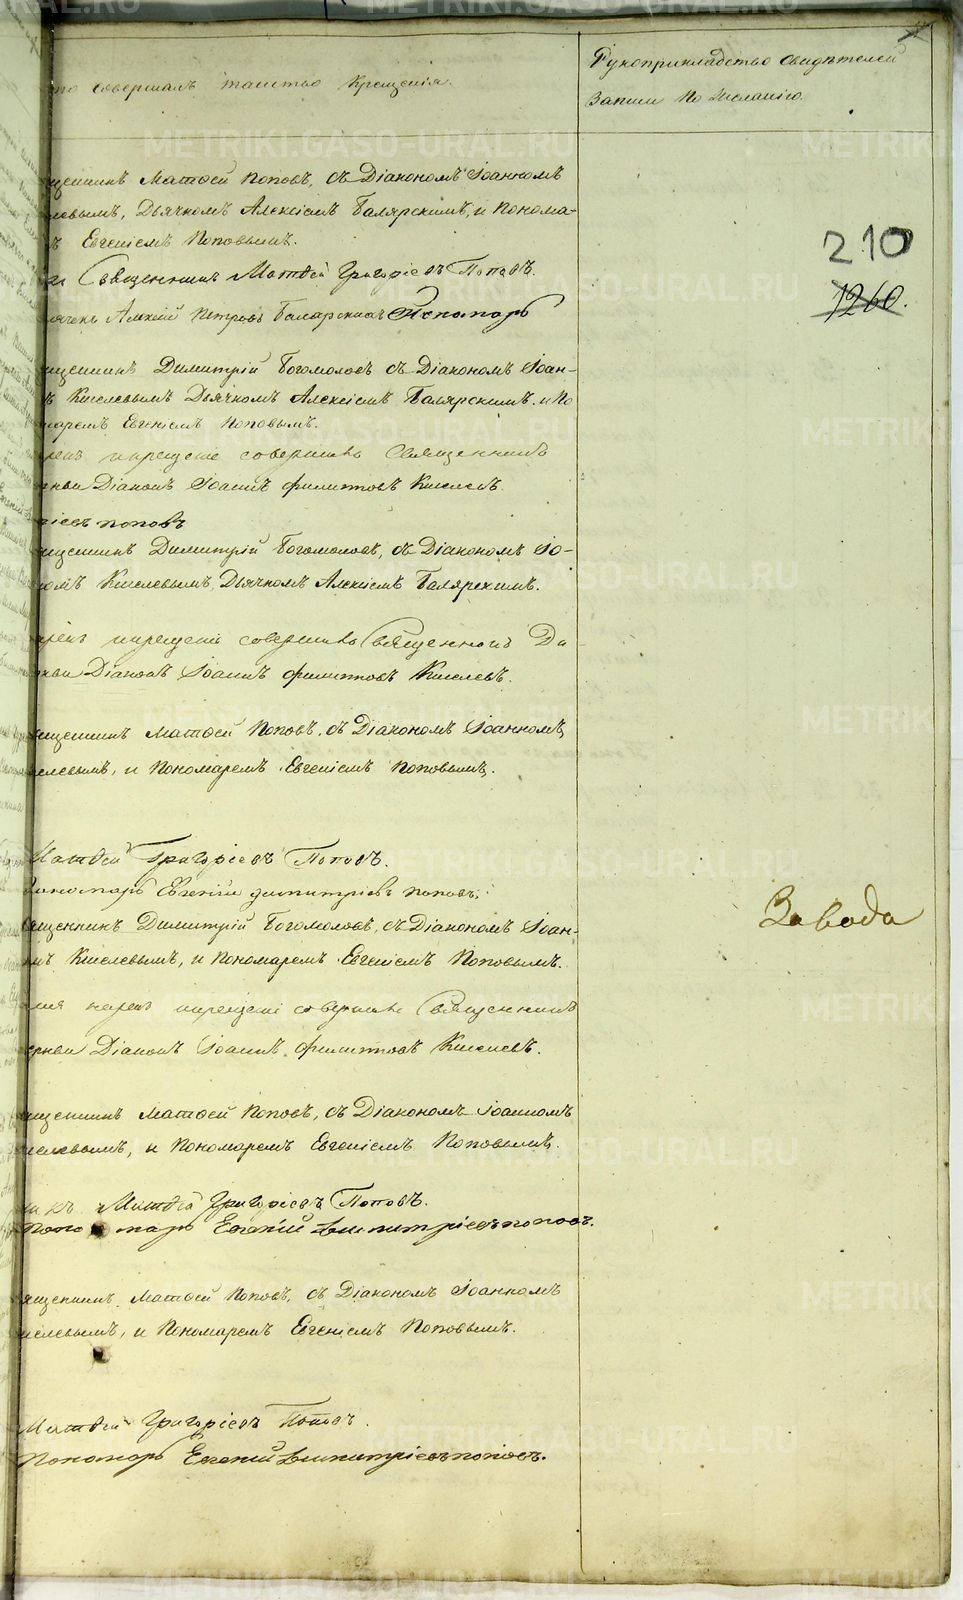 то совершалъ таинство Крещенія.
Рукоприкладство свидѣтелей
Записи по желанію.
щенникъ Матѳей Поповъ, съ Діакономъ Іоанномъ
левымъ, Дьячкомъ Алексіемъ Балярскимъ, и Понома-
Евгеніемъ Поповымъ.
210
Священникъ Матѳей Григоріевъ Поповъ.
1260.
Петровъ Пономарь
щенникъ Димитрій Богомоловъ съ Діакономъ Іоан-
ъ Киселевымъ Дьячкомъ Алексіемъ Балярскимъ. и По
маремъ Евгеніемъ Поповымъ.
крещеніе Священникъ
Діаконъ Іоаннъ Филипповъ Киселевъ.
ріевъ поповъ
щенникъ Димитрій Богомоловъ, съ Діакономъ Іо-
омъ Киселевымъ, Дьячкомъ Алексіемъ Балярскимъ.
Священникъ
Діаконъ Іоаннъ Филипповъ Киселевъ.
щенникъ Матѳей Поповъ. съ Діакономъ Іоанномъ
елевымъ, и Пономаремъ Евгеніемъ Поповымъ.
Матѳей Григоріевъ Поповъ.
Пономарь Евгеній Димитріевъ поповъ.
Завода
щенникъ Димитрій Богомоловъ, съ Діакономъ Іоан-
мъ Киселевымъ, и Пономаремъ Евгеніемъ Поповымъ.
Священникъ
Діаконъ Іоаннъ Филипповъ Киселевъ.
щенникъ Матѳей Поповъ, съ Діакономъ Іоанномъ
селевымъ, и Пономаремъ Евгеніемъ Поповымъ.
Матѳей Григоріевъ Поповъ.
Пономарь Евгеній Димитріевъ поповъ.
ященникъ Матѳей Поповъ, съ Діакономъ Іоанномъ
иселевымъ, и Пономаремъ Евгеніемъ Поповымъ.
Матѳей Григоріевъ Поповъ.
Пономарь Евгеній Димитріевъ поповъ.
METRIKI.GASO-URAL.RU